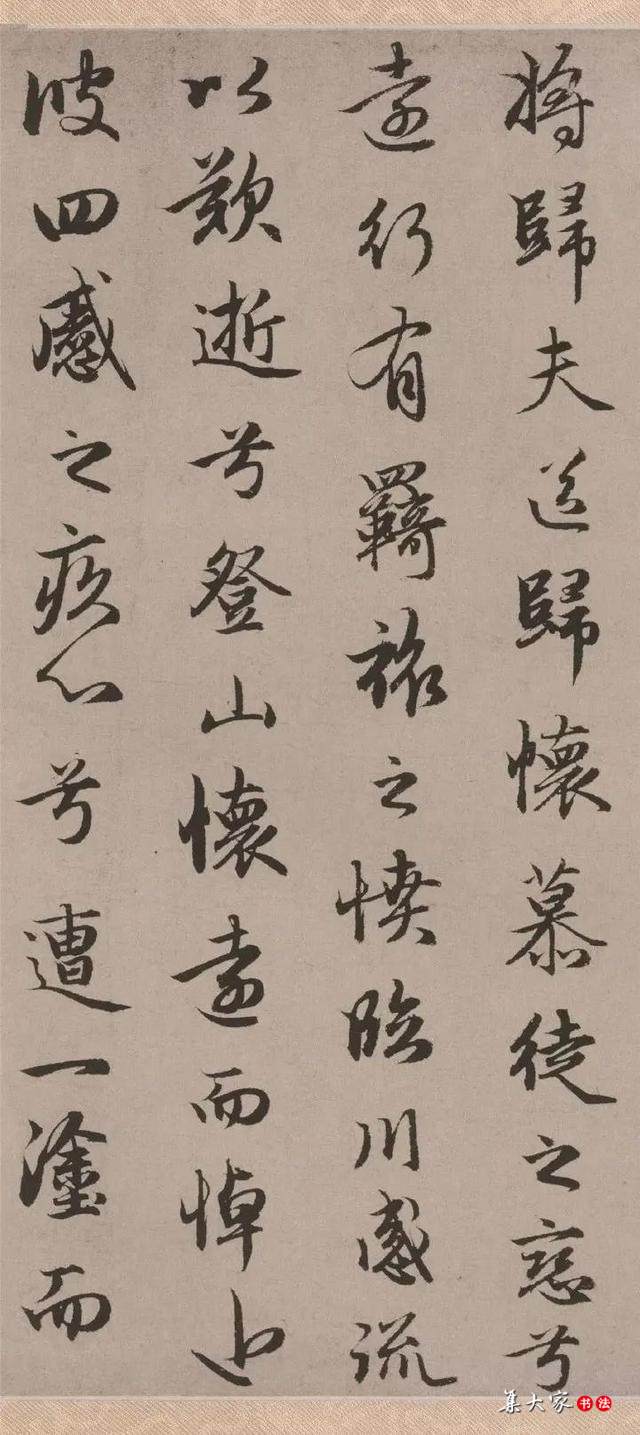 將歸夫送歸懷慕徒之戀兮
遠行有羇旅之憤臨川感流
以歎逝兮登山懷遠而悼近
彼四慼之疚心兮遭一塗而
集大家书法